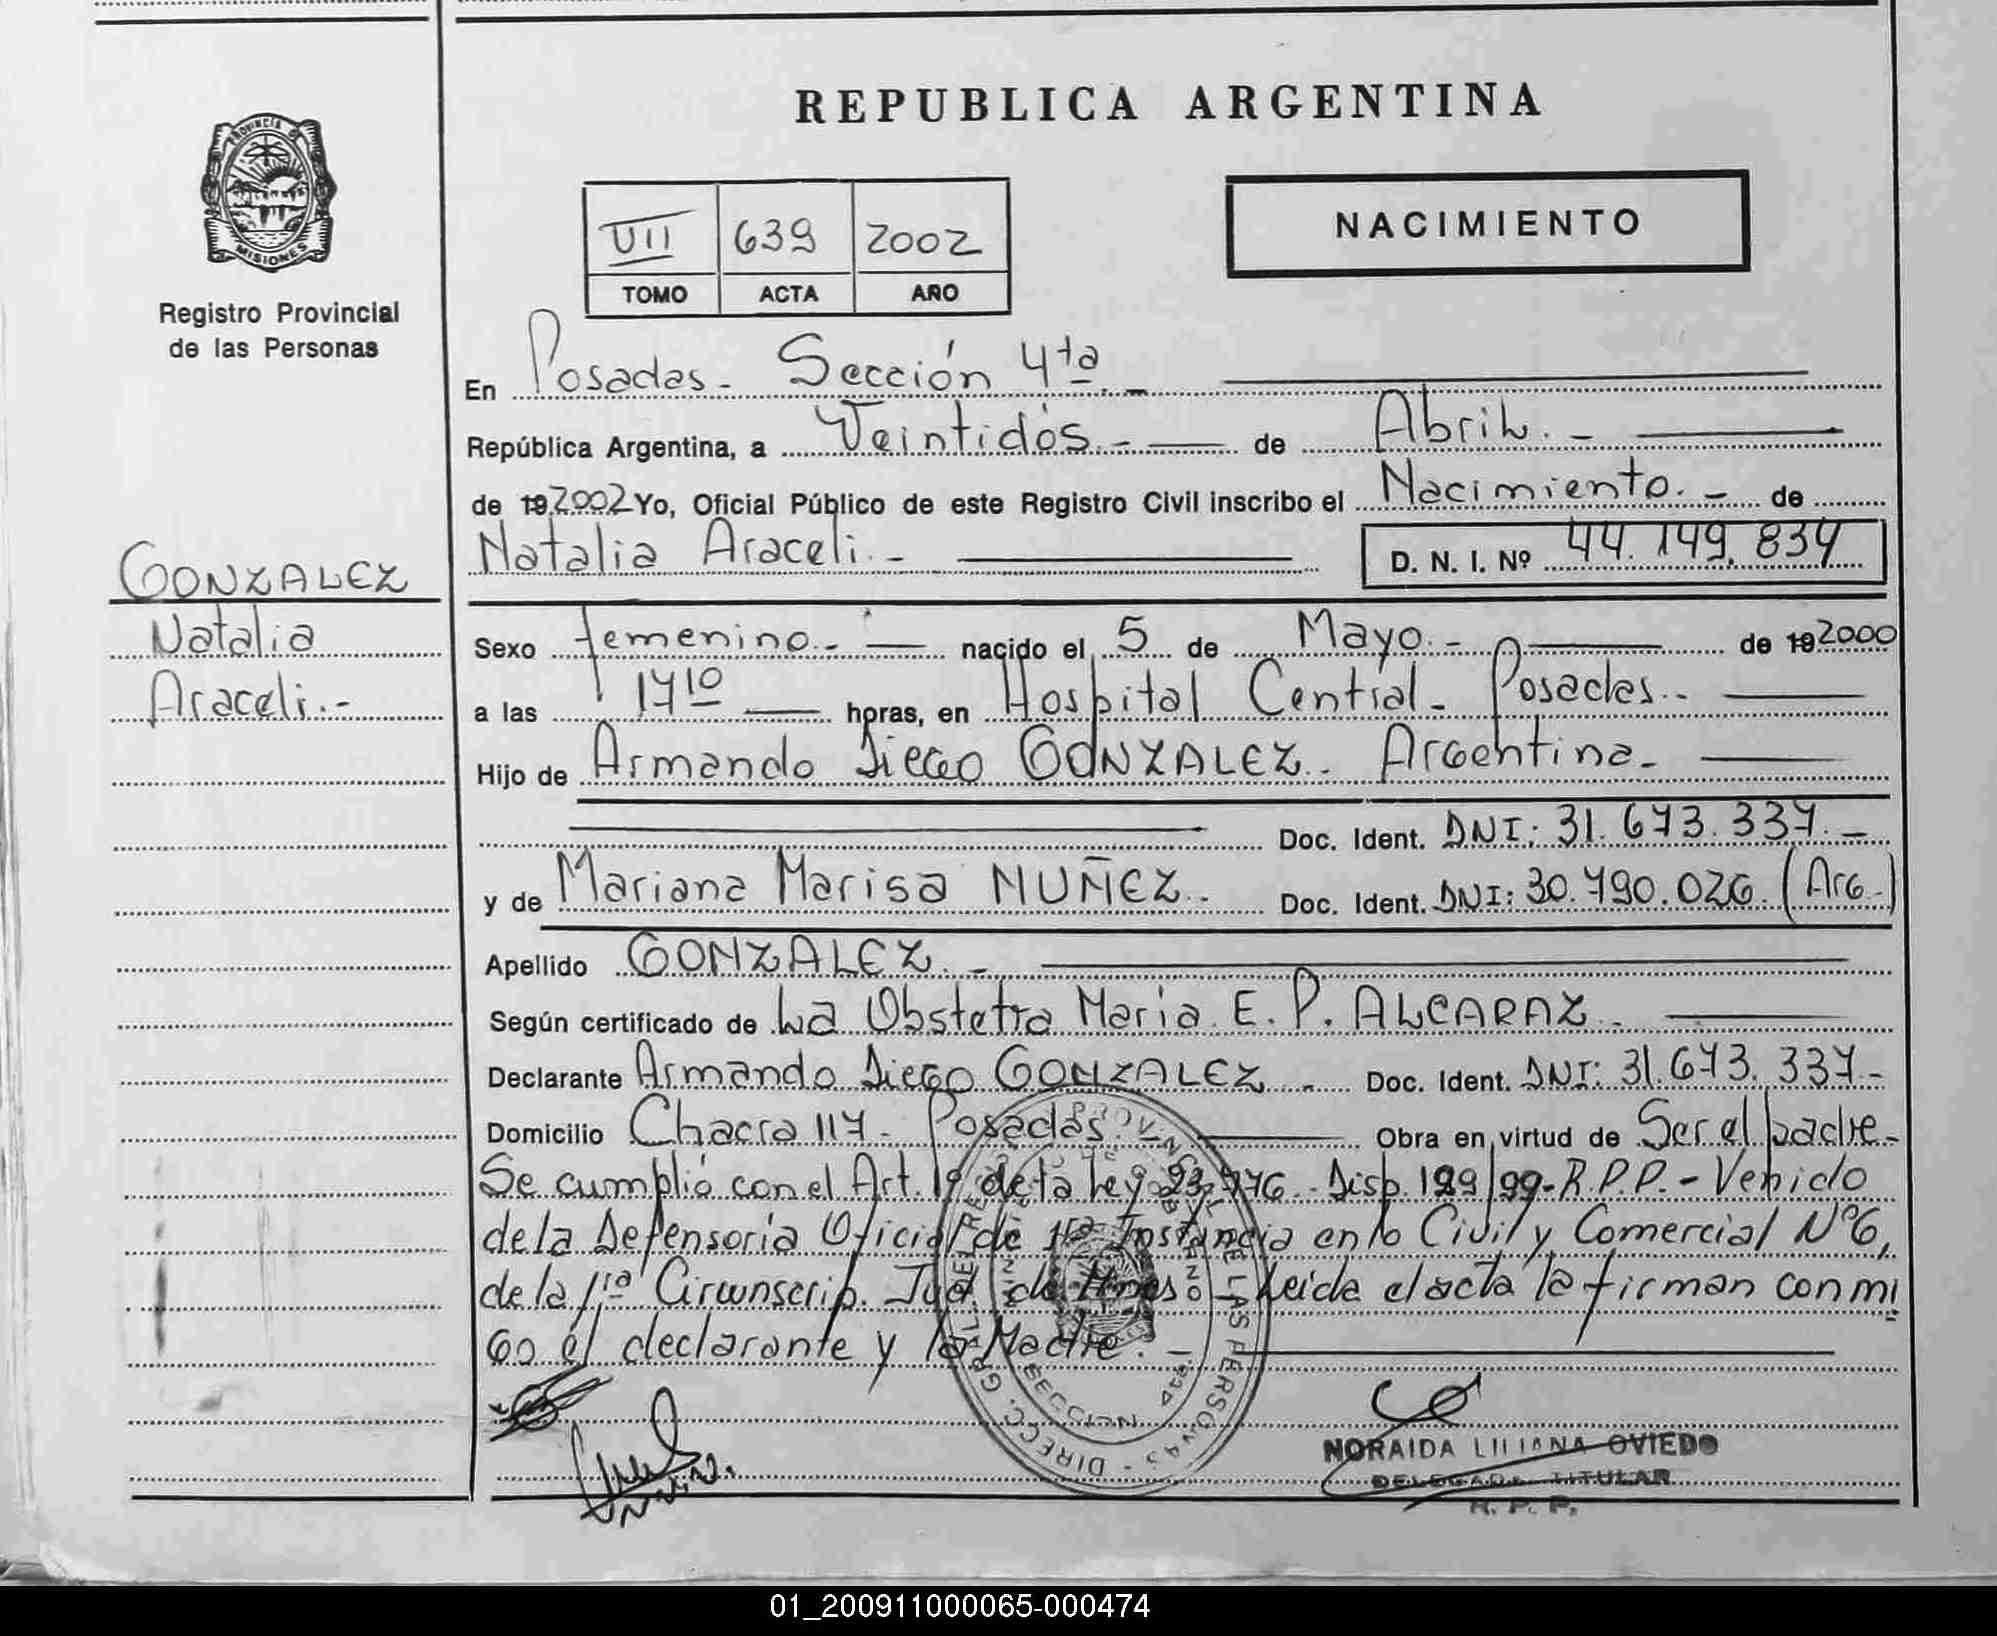 REPUBLICA ARGENTINA
PROVINCIA DE
MISIONES
Registro Provincial
de las Personas
VII 639 2002
TOMO ACTA AÑO
NACIMIENTO
En Posadas - Sección 4ta. -
República Argentina, a Veintidós. - de Abril. -
de 19 2002 Yo, Oficial Público de este Registro Civil inscribo el Nacimiento. - de
Natalia Araceli. - D. N. I. Nº 44.149.834
GONZALEZ
Natalia
Araceli. -
Sexo femenino. - nacido el 5 de Mayo. - de 19 2000
a las 1710 horas, en Hospital Central - Posadas. -
Hijo de Armando Diego GONZALEZ - Argentina -
Doc. Ident. DNI: 31.673.337. -
y de Mariana Marisa NUÑEZ. - Doc. Ident. DNI: 30.790.026. (Arg.)
Apellido GONZALEZ. -
Según certificado de La Obstetra Maria E. P. ALCARAZ. -
Declarante Armando Diego GONZALEZ - Doc. Ident. DNI: 31.673.337 -
Domicilio Chacra 117 - Posadas. - Obra en virtud de Ser el padre -
Se cumplió con el Art. de la Ley Disp. 199/99 - R.P.P. - Venido
de la Defensoría Oficial de 1ra Instancia en lo Civil y Comercial Nº 6,
de la 1ra Circunscrip. Jud. de Mnes - Leida el acta la firman con mi
go el declarante y la Madre. -
DIRECC. GRAL. DEL REG. PROVINCIAL DE LAS PERSONAS
SECCION 4ta
NORAIDA LILIANA OVIEDO
DELEGADA TITULAR
R. P. P.
01_200911000065-000474